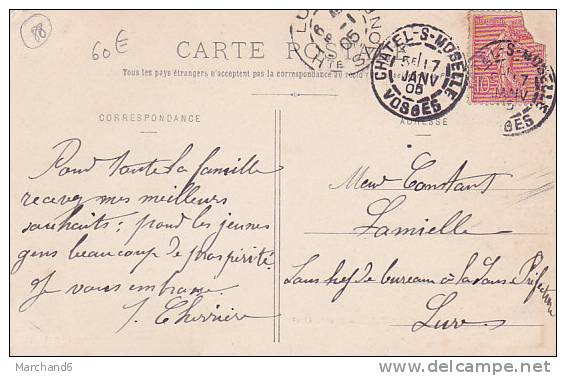 88
60 €
CARTE POSTALE
Tous les pays étrangers n'acceptent pas la correspondance au recto
CHATEL-S-MOSELLE
5E 17
JANV
05
VOSGES
CORRESPONDANCE
ADRESSE
Pour toute la famille
recevez mes meilleurs
souhaits; pour les jeunes
gens beaucoup de prospérité.
Je vous embrasse.
Constant
Lamielle
Sous chef de bureau à la Sous Préfecture
Lure
Marchand6
delcampe.net